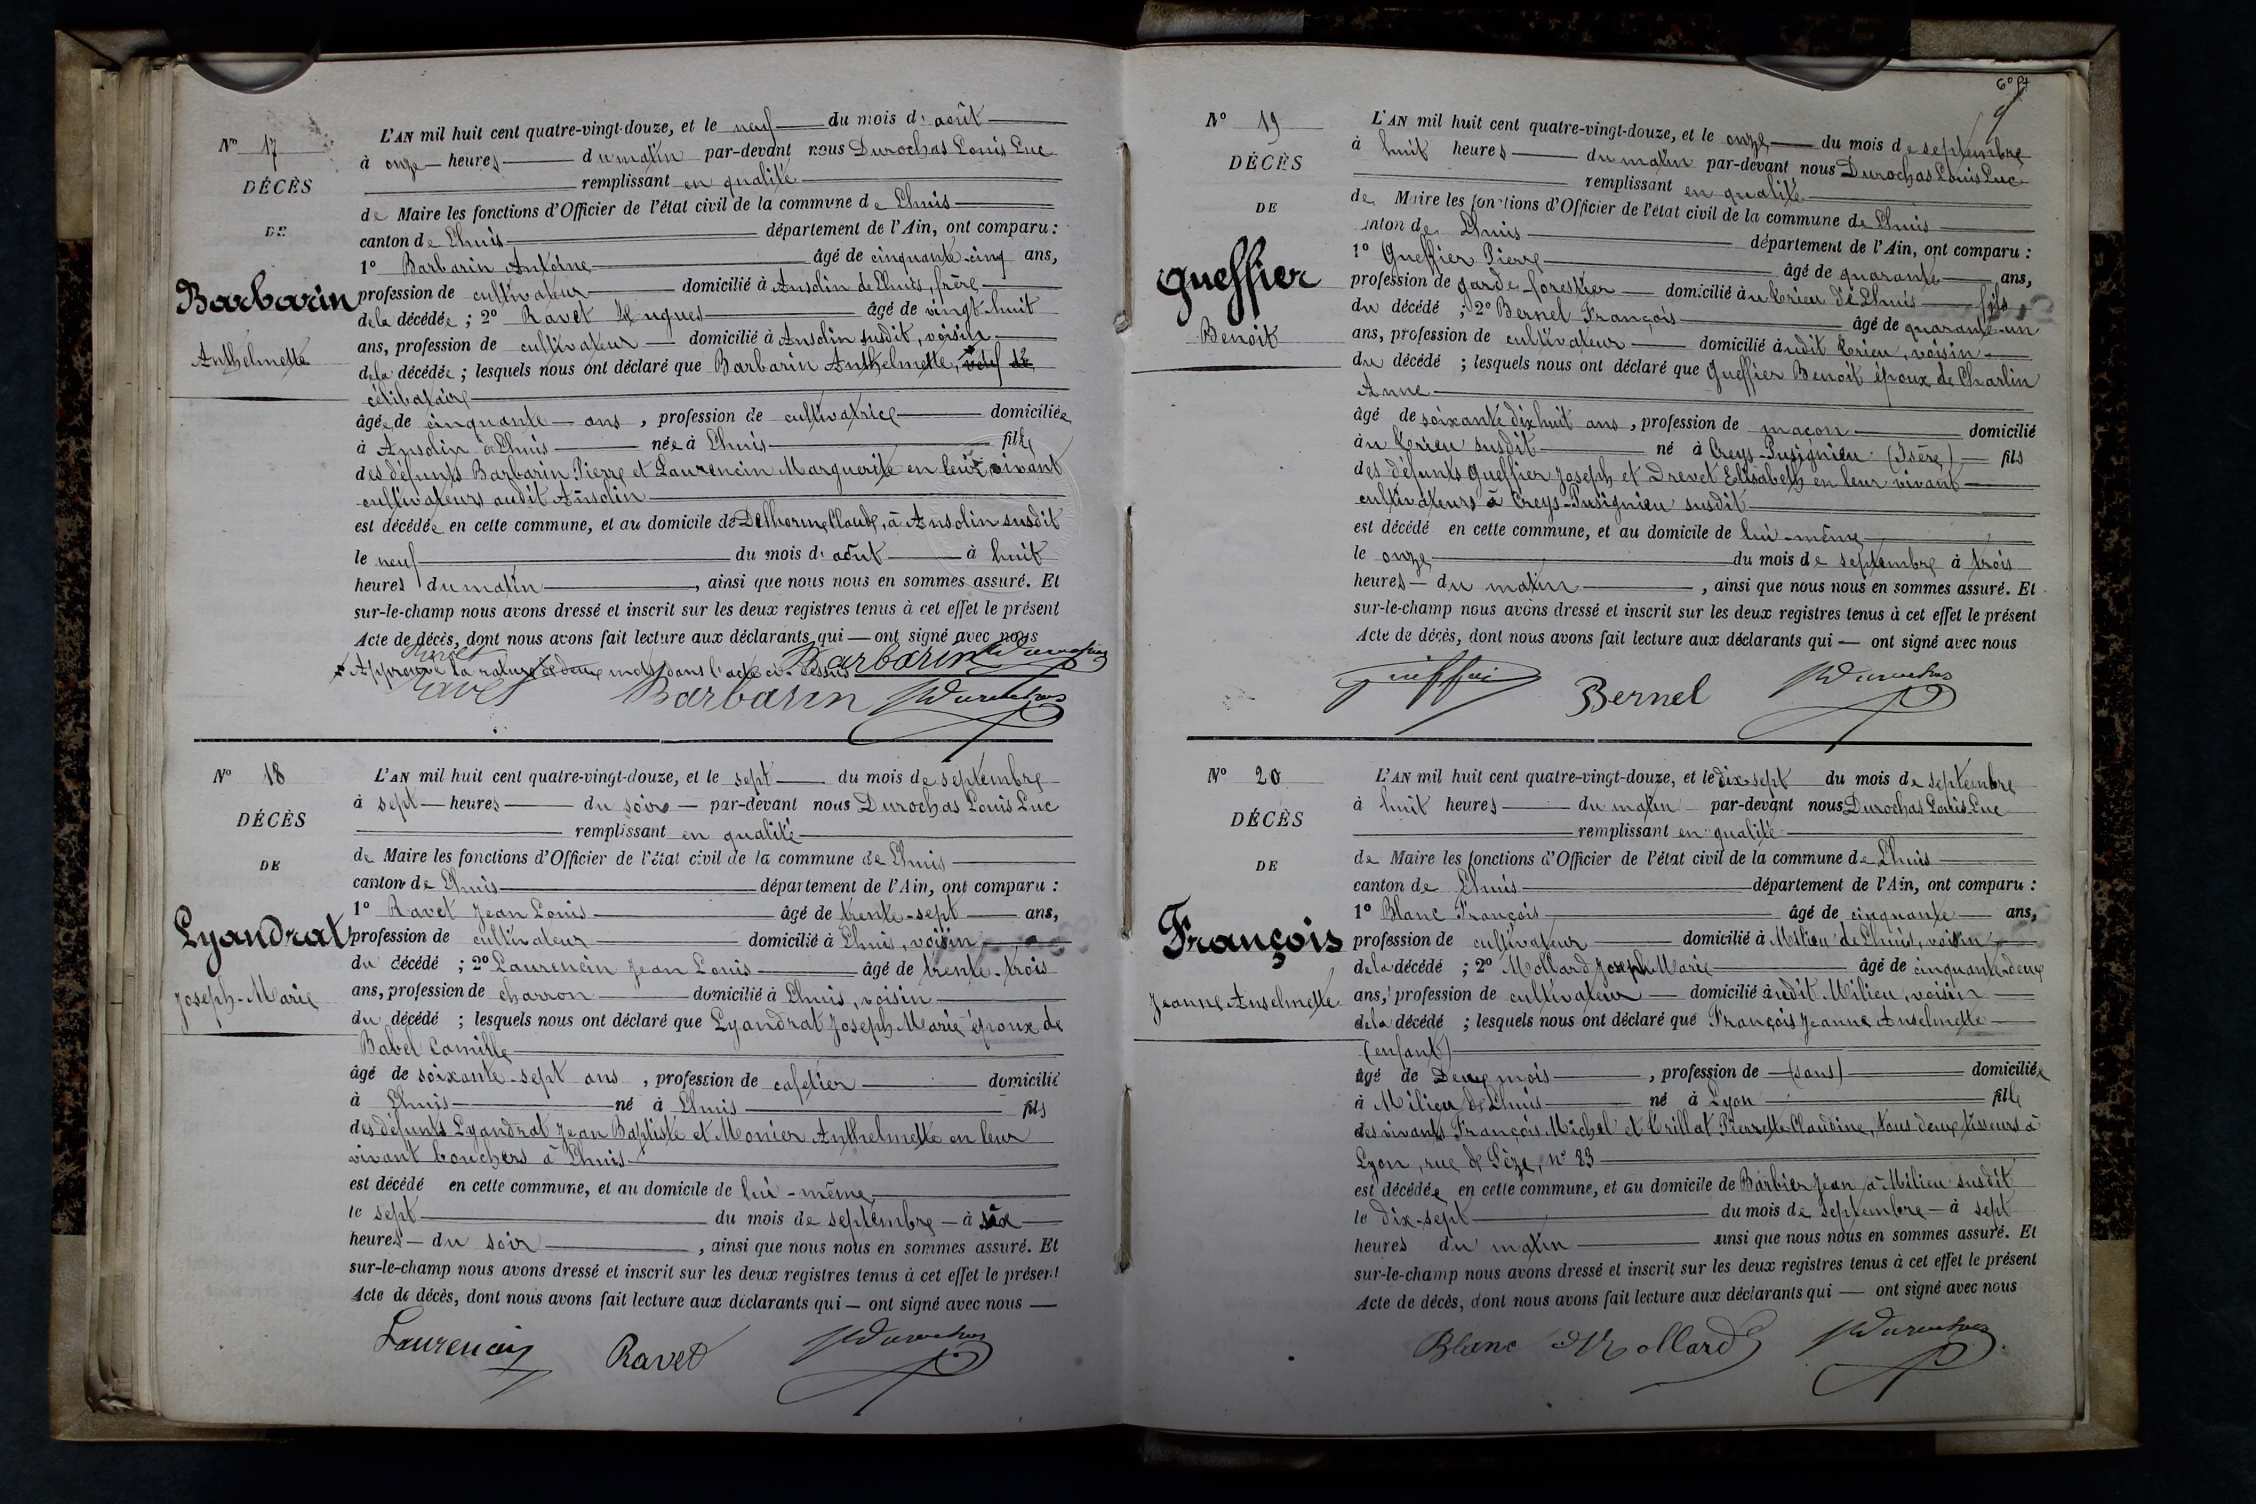 Nº 17
DÉCÈS
DE
Barbarin
Anthelmette
L'AN mil huit cent quatre-vingt-douze, et le neuf du mois d' août
à onze heures du matin par-devant nous Durochas Louis Luc
remplissant en qualité
de Maire les fonctions d'Officier de l'état civil de la commune de Lhuis
canton de Lhuis département de l'Ain, ont comparu :
1º Barbarin Antoine âgé de cinquante-cinq ans,
profession de cultivateur domicilié à Ansolin de Lhuis, frère
de la décédée ; 2º Ravet Hugues âgé de vingt-huit
ans, profession de cultivateur domicilié à Ansolin susdit, voisin
de la décédée ; lesquels nous ont déclaré que Barbarin Anthelmette,
célibataire
âgée de cinquante ans , profession de cultivatrice domiciliée
à Ansolin à Lhuis née à Lhuis fille
des défunts Barbarin Pierre et Laurencin Marguerite en leur vivant
cultivateurs audit Ansolin
est décédée en cette commune, et au domicile de Delhorme Claude, à Ansolin susdit
le neuf du mois d' août à huit
heures du matin , ainsi que nous nous en sommes assuré. Et
sur-le-champ nous avons dressé et inscrit sur les deux registres tenus à cet effet le présent
Acte de décès, dont nous avons fait lecture aux déclarants qui ont signé avec nous
Approuvé la rature de deux mots dans l'acte ci-dessus Barbarin
Ravet Barbarin Durochas
Nº 18
DÉCÈS
DE
Lyandrat
Joseph-Marie
L'AN mil huit cent quatre-vingt-douze, et le sept du mois de septembre
à sept heures du soir par-devant nous Durochas Louis Luc
remplissant en qualité
de Maire les fonctions d'Officier de l'état civil de la commune de Lhuis
canton de Lhuis département de l'Ain, ont comparu :
1º Ravet Jean Louis âgé de trente-sept ans,
profession de cultivateur domicilié à Lhuis, voisin
du décédé ; 2º Laurencin Jean Louis âgé de trente-trois
ans, profession de charron domicilié à Lhuis, voisin
du décédé ; lesquels nous ont déclaré que Lyandrat Joseph Marie époux de
Babel Camille
âgé de soixante-sept ans , profession de cafetier domicilié
à Lhuis né à Lhuis fils
des défunts Lyandrat Jean Baptiste et Monier Anthelmette en leur
vivant bouchers à Lhuis
est décédé en cette commune, et au domicile de lui-même
le sept du mois de septembre à six
heures du soir , ainsi que nous nous en sommes assuré. Et
sur-le-champ nous avons dressé et inscrit sur les deux registres tenus à cet effet le présent
Acte de décès, dont nous avons fait lecture aux déclarants qui ont signé avec nous
Laurencin Ravet Durochas
Nº 19
DÉCÈS
DE
Gueffier
Benoit
L'AN mil huit cent quatre-vingt-douze, et le onze du mois de septembre
à huit heures du matin par-devant nous Durochas Louis Luc
remplissant en qualité
de Maire les fonctions d'Officier de l'état civil de la commune de Lhuis
canton de Lhuis département de l'Ain, ont comparu :
1º Gueffier Pierre âgé de quarante ans,
profession de garde-forestier domicilié à u Crieu de Lhuis fils
du décédé ; 2º Bernel François âgé de quarante-un
ans, profession de cultivateur domicilié à udit Crieu, voisin
du décédé ; lesquels nous ont déclaré que Gueffier Benoit époux de Charlin
Anne
âgé de soixante dix huit ans , profession de maçon domicilié
à u Crieu susdit né à Creys-Pusignieu (Isère) fils
des défunts Gueffier Joseph et Drevet Elisabeth en leur vivant
cultivateurs à Creys-Pusignieu susdit
est décédé en cette commune, et au domicile de lui-même
le onze du mois de septembre à trois
heures du matin , ainsi que nous nous en sommes assuré. Et
sur-le-champ nous avons dressé et inscrit sur les deux registres tenus à cet effet le présent
Acte de décès, dont nous avons fait lecture aux déclarants qui ont signé avec nous
Gueffier Bernel Durochas
Nº 20
DÉCÈS
DE
François
Jeanne Anselmette
L'AN mil huit cent quatre-vingt-douze, et le dix-sept du mois de septembre
à huit heures du matin par-devant nous Durochas Louis Luc
remplissant en qualité
de Maire les fonctions d'Officier de l'état civil de la commune de Lhuis
canton de Lhuis département de l'Ain, ont comparu :
1º Blanc François âgé de cinquante ans,
profession de cultivateur domicilié à Milieu de Lhuis, voisin
de la décédé ; 2º Mollard Joseph Marie âgé de cinquante-deux
ans, profession de cultivateur domicilié à udit Milieu, voisin
de la décédé ; lesquels nous ont déclaré que François Jeanne Anselmette
(enfant)
âgé de Deux mois , profession de (sans) domiciliée
à Milieu de Lhuis né à Lyon fille
des vivants François Michel et Crillat Pierrette Claudine, tous deux tisseurs à
Lyon, rue de Sèze, nº 23
est décédée en cette commune, et au domicile de Barbier Jean à Milieu susdit
le dix-sept du mois de septembre à sept
heures du matin ainsi que nous nous en sommes assuré. Et
sur-le-champ nous avons dressé et inscrit sur les deux registres tenus à cet effet le présent
Acte de décès, dont nous avons fait lecture aux déclarants qui ont signé avec nous
Blanc Mollard Durochas